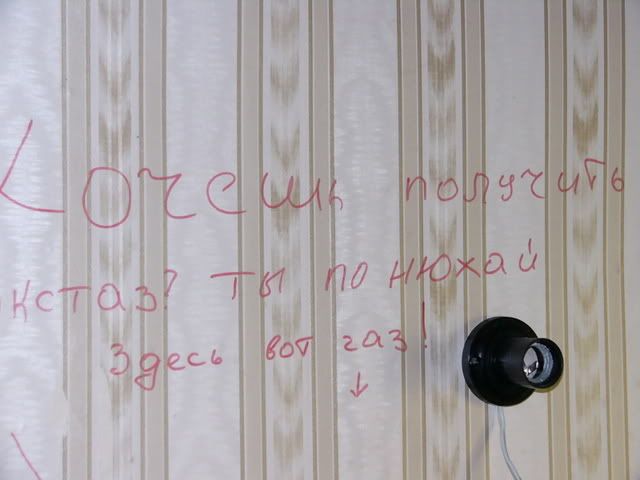 Хочешь получить
экстаз? ты понюхай
Здесь вот газ!
↓